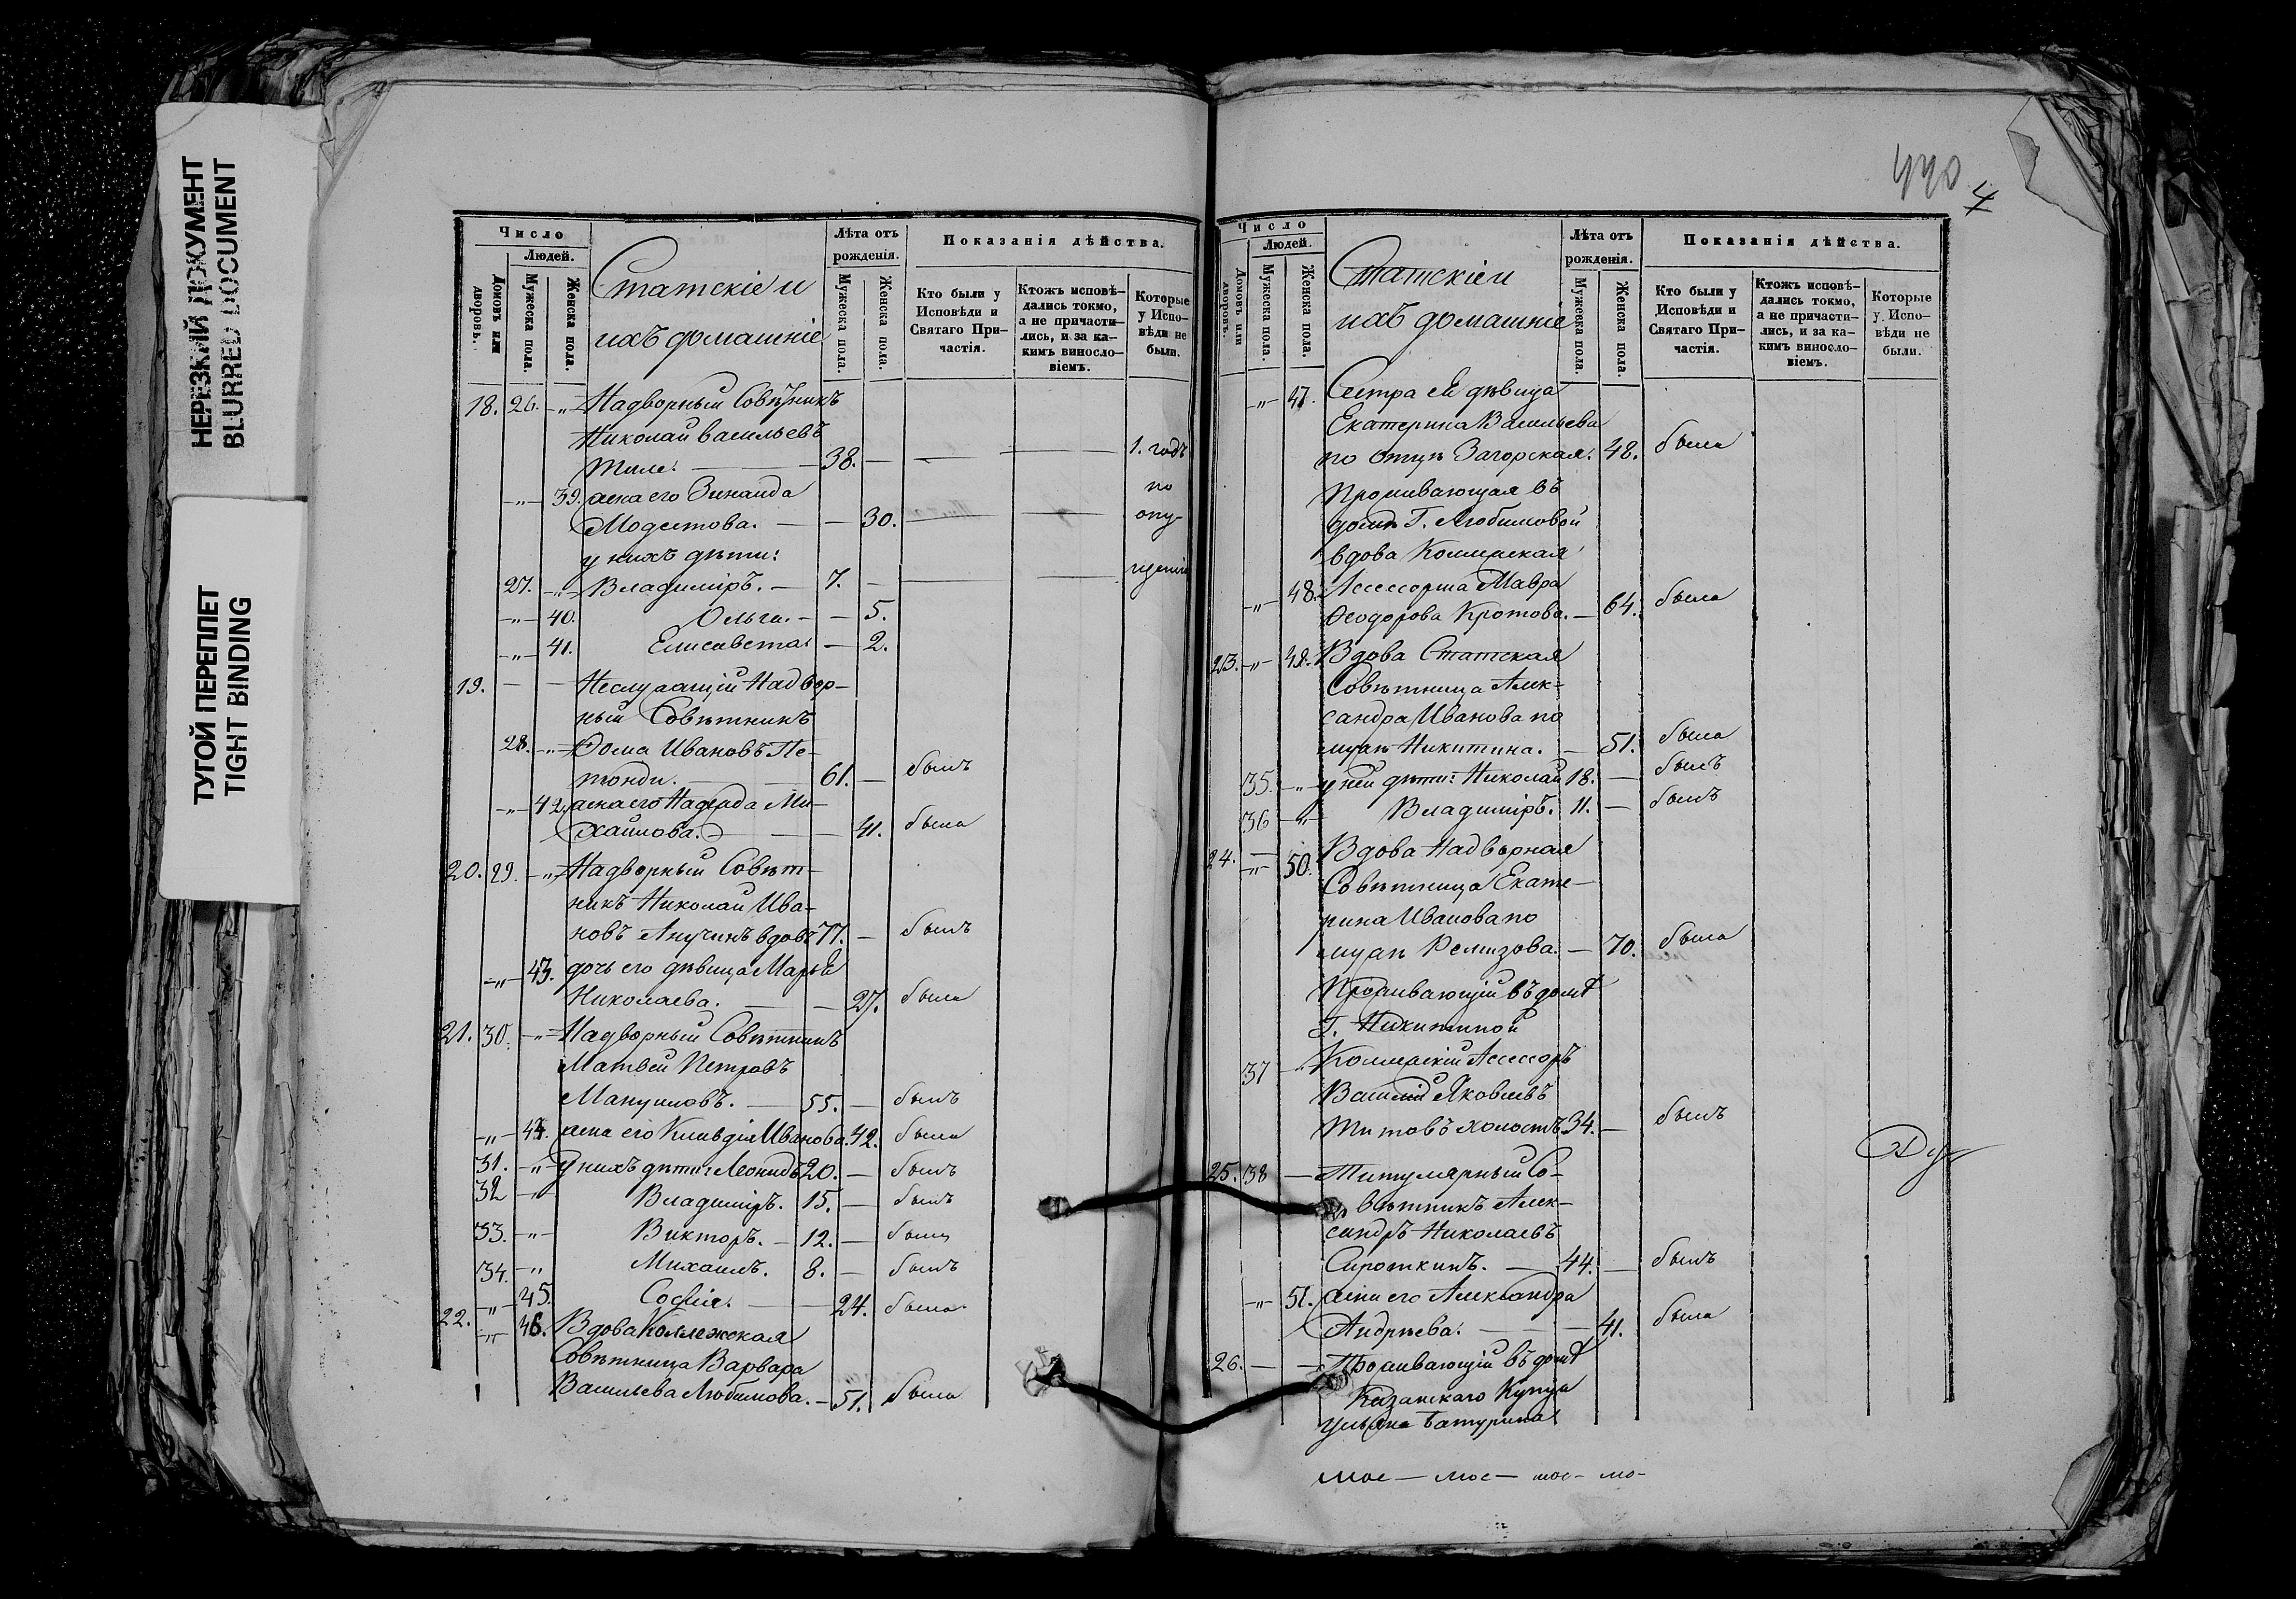 НЕРЕЗКИЙ ДОКУМЕНТ
BLURRED DOCUMENT
ТУГОЙ ПЕРЕПЛЕТ
TIGHT BINDING
Число
Людей.
Домовъ или дворовъ.
Мужеска пола.
Женска пола.
Статскіе и
ихъ домашніе
Лѣта отъ рожденія.
Мужеска пола.
Женска пола.
Показанія дѣйства.
Кто были у Исповѣди и Святаго Причастія.
Ктожъ исповѣдались токмо, а не причастились, и за какимъ винословіемъ.
Которые у Исповѣди не были.
18. 26. -„- Надворный Совѣтникъ
Николай Васильевъ
Тиле. — 38. — 1. годъ
-„- 39. жена его Зинаида по
Модестова. — — 30. опу-
у нихъ дѣти:
27. -„- Владиміръ. — 7. — щенію
-„- 40. Ольга. — — 5.
-„- 41. Елисавета. — 2.
19. — — Неслужащій Надвор-
ный Совѣтникъ
28. -„- Ѳома Ивановъ Пе-
тонди. — 61. — былъ
-„- 42. жена его Надежда Ми-
хайлова. — — 41. была
20. 29. -„- Надворный Совѣт-
никъ Николай Ива-
новъ Анучинъ вдовъ 77. — былъ
-„- 43. дочь его дѣвица Марья
Николаева. — — 27. была
21. 30. -„- Надворный Совѣтникъ
Матвей Петровъ
Мануиловъ. — 55. — былъ
-„- 44. жена его Клавдія Иванова. 42. была
31. -„- У нихъ дѣти: Леонидъ 20. — былъ
32 -„- Владиміръ. 15. — былъ
33. -„- Викторъ. — 12. — былъ
34. -„- Михаилъ. 8. — былъ
-„- 45. Софія. — — 24. была
22. -„- 46. Вдова Коллежская
Совѣтница Варвара
Васильева Любимова. — 51. была
440
4
Число
Людей.
Домовъ или дворовъ.
Мужеска пола.
Женска пола.
Статскіе и
ихъ домашніе
Лѣта отъ рожденія.
Мужеска пола.
Женска пола.
Показанія дѣйства.
Кто были у Исповѣди и Святаго Причастія.
Ктожъ исповѣдались токмо, а не причастились, и за какимъ винословіемъ.
Которые у Исповѣди не были.
-„- 47. Сестра ея дѣвица
Екатерина Васильева
по отцѣ Загорская. 48. была
Проживающая въ
домѣ Г. Любимовой
вдова Коллежская
-„- 48. Ассесорша Мавра
Ѳеодорова Кротова. — 64. была
23. -„- 49. Вдова Статская
Совѣтница Алек-
сандра Иванова по
мужѣ Никитина. — 51. была
35. -„- у ней дѣти: Николай 18. — былъ
36 -„- Владиміръ. 11. — былъ
24. -„- 50. Вдова Надворная
Совѣтница Екате-
рина Иванова по
мужѣ Ремизова. — 70. была
Проживающій въ домѣ
Г. Никитиной
37 — Коллежскій Ассесоръ
Василій Яковлевъ
Титовъ холостъ 34. — былъ
25. 38 — Титулярный Со-
вѣтникъ Алек-
сандръ Николаевъ
Сироткинъ. — 44. — былъ
-„- 51. жена его Александра
Андреева. — — 41. была
26. — — Проживающій въ домѣ
Казанскаго Купца
Ульяна Батурина